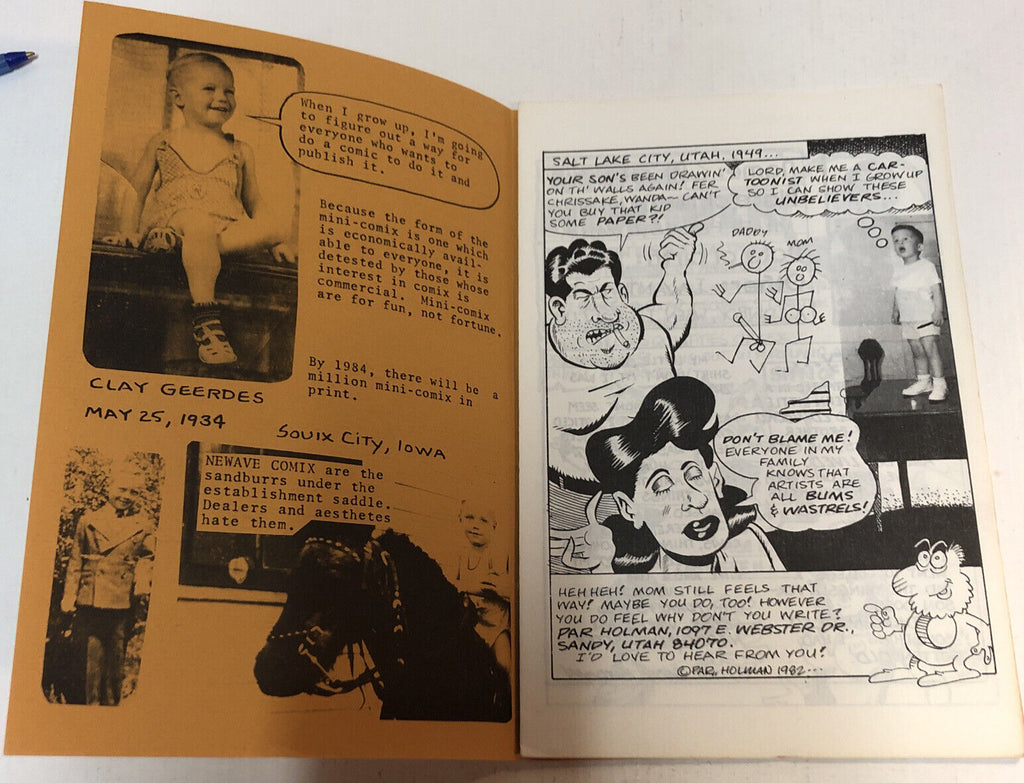 When I grow up, I'm going
to figure out a way for
everyone who wants to
do a comic to do it and
publish it.
Because the form of the
mini-comix is one which
is economically avail-
able to everyone, it is
detested by those whose
interest in comix is
commercial. Mini-comix
are for fun, not fortune.
By 1984, there will be a
million mini-comix in
print.
CLAY GEERDES
MAY 25, 1934
SOUIX CITY, IOWA
NEWAVE COMIX are the
sandburrs under the
establishment saddle.
Dealers and aesthetes
hate them.
SALT LAKE CITY, UTAH, 1949...
YOUR SON'S BEEN DRAWIN'
ON TH' WALLS AGAIN! FER
CHRISSAKE, WANDA~ CAN'T
YOU BUY THAT KID
SOME PAPER?!
LORD, MAKE ME A CAR-
TOONIST WHEN I GROW UP
SO I CAN SHOW THESE
UNBELIEVERS...
DADDY
MOM
DON'T BLAME ME!
EVERYONE IN MY
FAMILY
KNOWS THAT
ARTISTS ARE
ALL BUMS
& WASTRELS!
HEH HEH! MOM STILL FEELS THAT
WAY! MAYBE YOU DO, TOO! HOWEVER
YOU DO FEEL WHY DON'T YOU WRITE?
PAR HOLMAN, 1097 E. WEBSTER DR.,
SANDY, UTAH 84070.
I'D LOVE TO HEAR FROM YOU!
©PAR HOLMAN 1982...